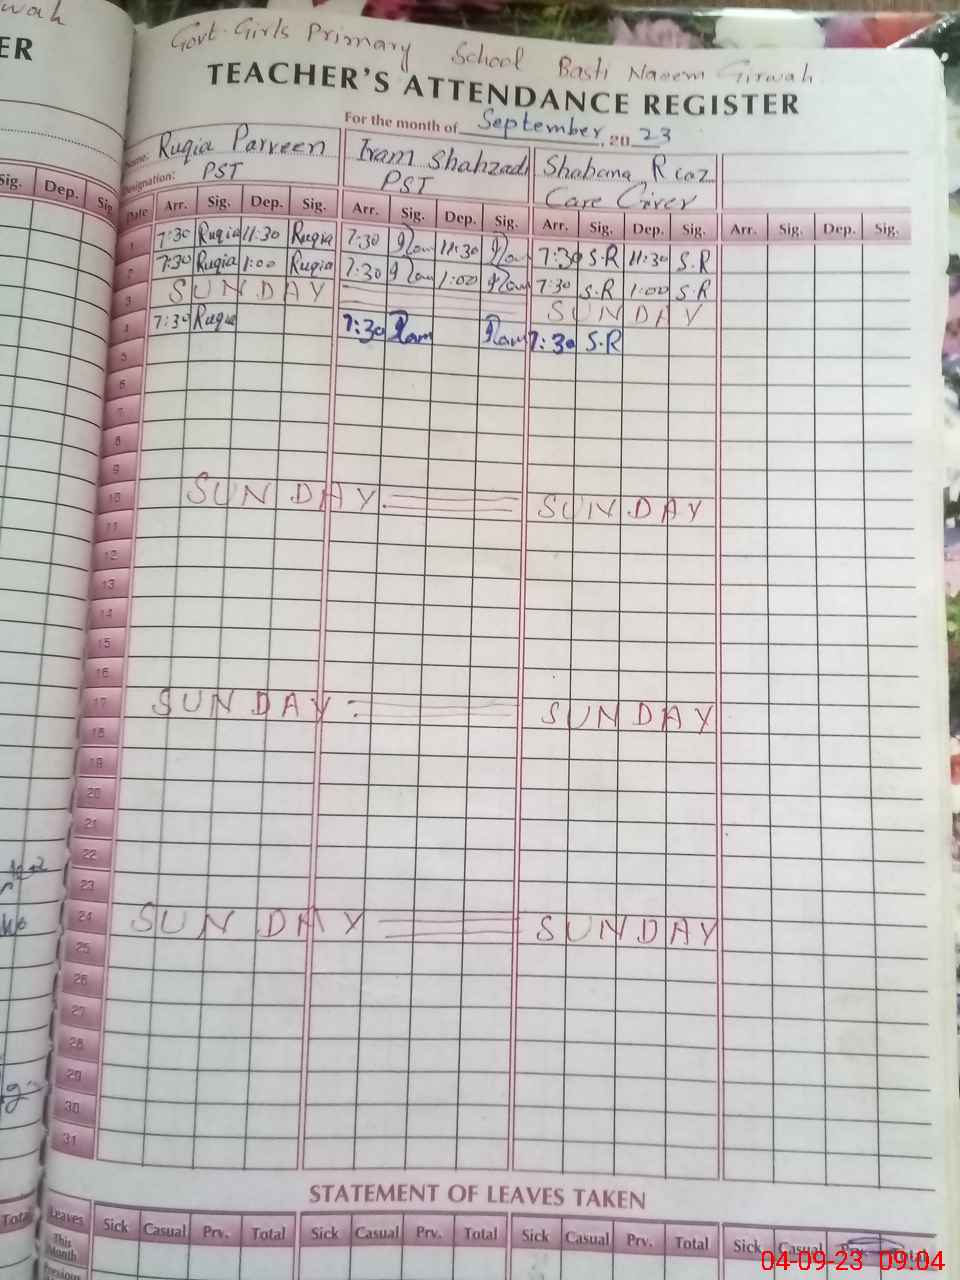 wah
ER
Sig. Dep. Sig
Total
Govt. Girls Primary School Basti Naeem Girwah.
TEACHER'S ATTENDANCE REGISTER
For the month of September, 2023
Name: Ruqia Parveen Iram Shahzadi Shabana Riaz
Designation: PST PST Care Giver
Date Arr. Sig. Dep. Sig. Arr. Sig. Dep. Sig. Arr. Sig. Dep. Sig. Arr. Sig. Dep. Sig.
1 7:30 Ruqia 11:30 Ruqia 7:30 11:30 7:30 S.R 11:30 S.R
2 7:30 Ruqia 1:00 Ruqia 7:30 1:00 7:30 S.R 1:00 S.R
3 SUNDAY SUNDAY
4 7:30 Ruqia 7:30 7:30 S.R
5
6
7
8
9
10 SUNDAY SUNDAY
11
12
13
14
15
16
17 SUNDAY SUNDAY
18
19
20
21
22
23
24 SUNDAY SUNDAY
25
26
27
28
29
30
31
STATEMENT OF LEAVES TAKEN
Leaves Sick Casual Prv. Total Sick Casual Prv. Total Sick Casual Prv. Total Sick Casual
This Month
Previous
04-09-23 09:04